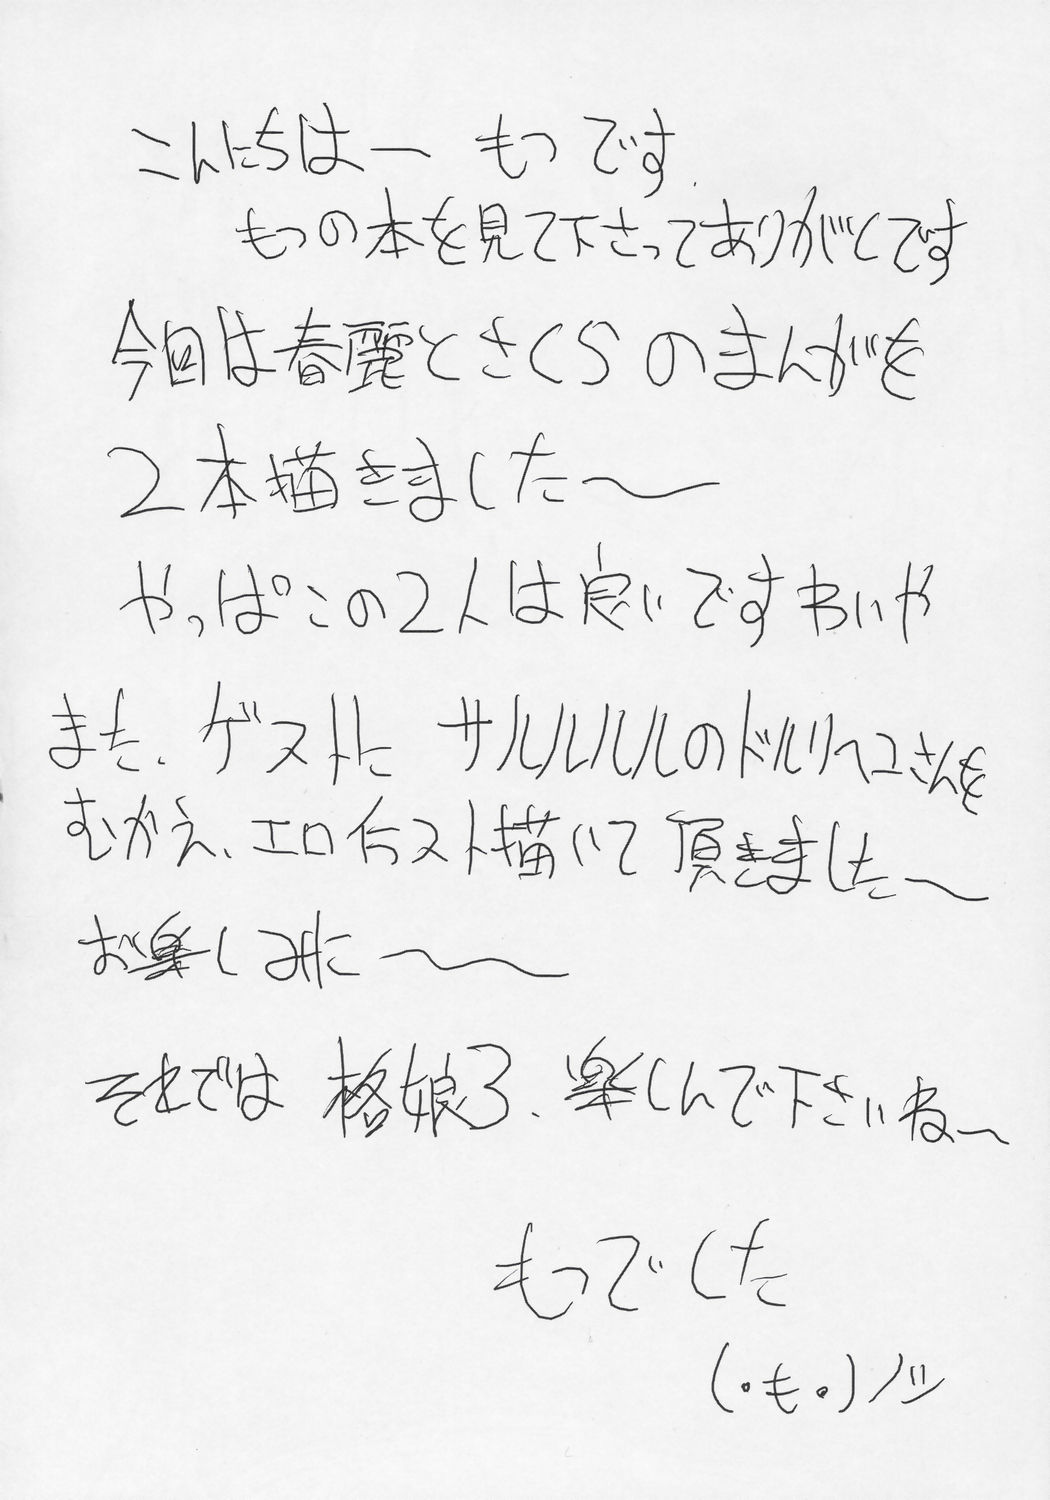 こんにちはー もつです.
もつの本を見て下さってありがとです
今回は春麗とさくらのまんがを
2本描きました〜
やっぱこの2人は良いですわいや
また、ゲストに サルルルルのドルリヘコさんを
むかえ、エロイラスト描いて頂きました〜
お楽しみに〜〜
それでは 格娘3、楽しんで下さいねー
もつでした
(・も・)ノシ